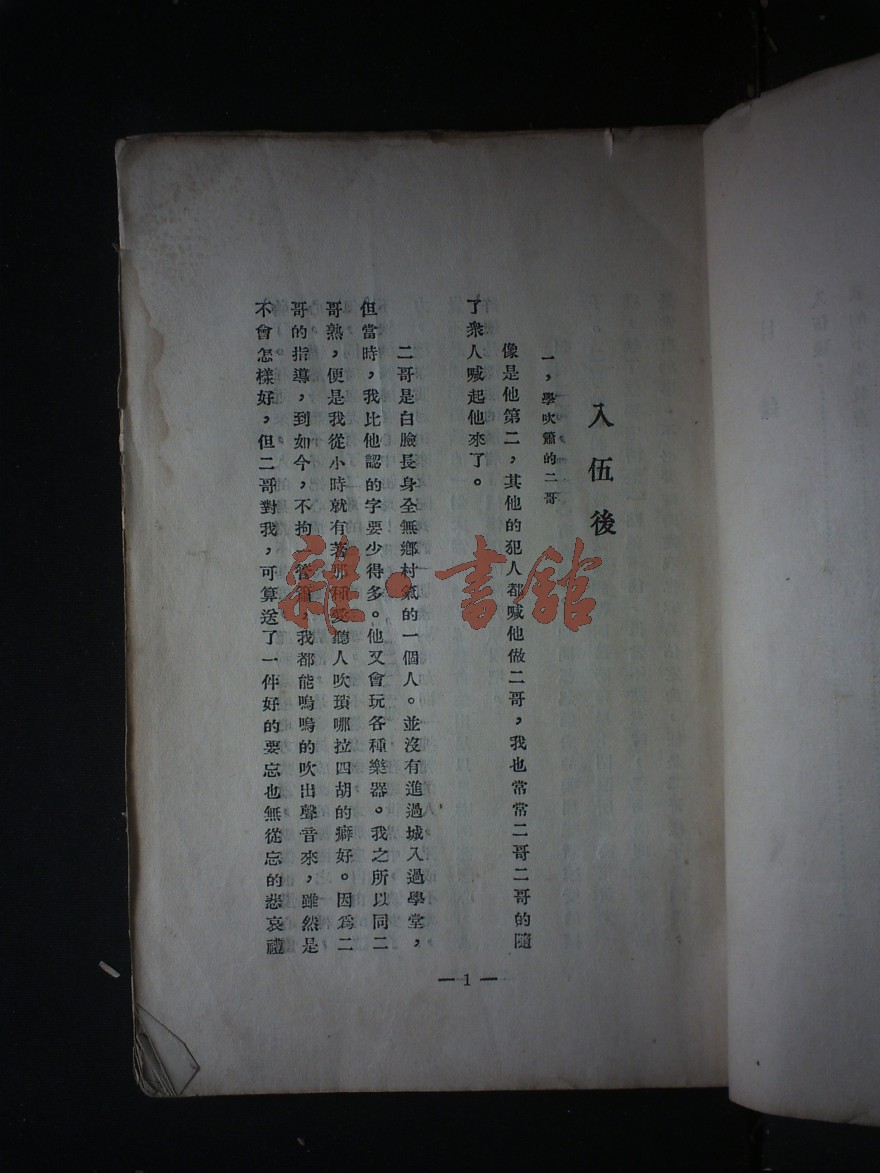 入伍後
一，學吹簫的二哥
像是他第二，其他的犯人都喊他做二哥，我也常常二哥二哥的隨
了衆人喊起他來了。
二哥是白臉長身全無鄉村氣的一個人。並沒有進過城入過學堂，
但當時，我比他認的字要少得多。他又會玩各種樂器。我之所以同二
哥熟，便是我從小時就有著那種愛聽人吹瑣哪拉四胡的癖好。因爲二
哥的指導，到如今，不拘管簫，我都能嗚嗚的吹出聲音來，雖然是
不會怎樣好，但二哥對我，可算送了一件好的要忘也無從忘的悲哀禮
— 1 —
雜·書館